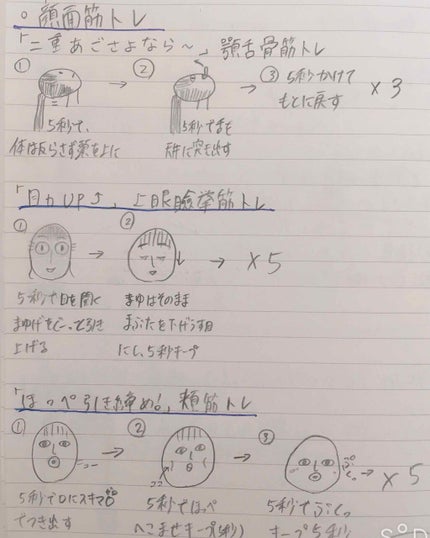 顔面筋トレ
「二重あごさよなら〜」顎舌骨筋トレ
① → ② → ③ 5秒かけて
もとに戻す
×3
5秒で、
体は反らさず顔を上に
5秒で舌を
天井に突き出す
「目力UP↑」上眼瞼挙筋トレ
① → ② → ×5
5秒で目を開く
まゆげをぐーっと引き
上げる
まゆはそのまま
まぶたを下げうす目
にし、5秒キープ
「ほっぺ引き締め!」頬筋トレ
① → ② → ③ → ×5
5秒で口にスキマ
でつき出す
5秒でほっぺ
へこませキープ(5秒)
ぷくっ
5秒でぷくっ
キープ5秒